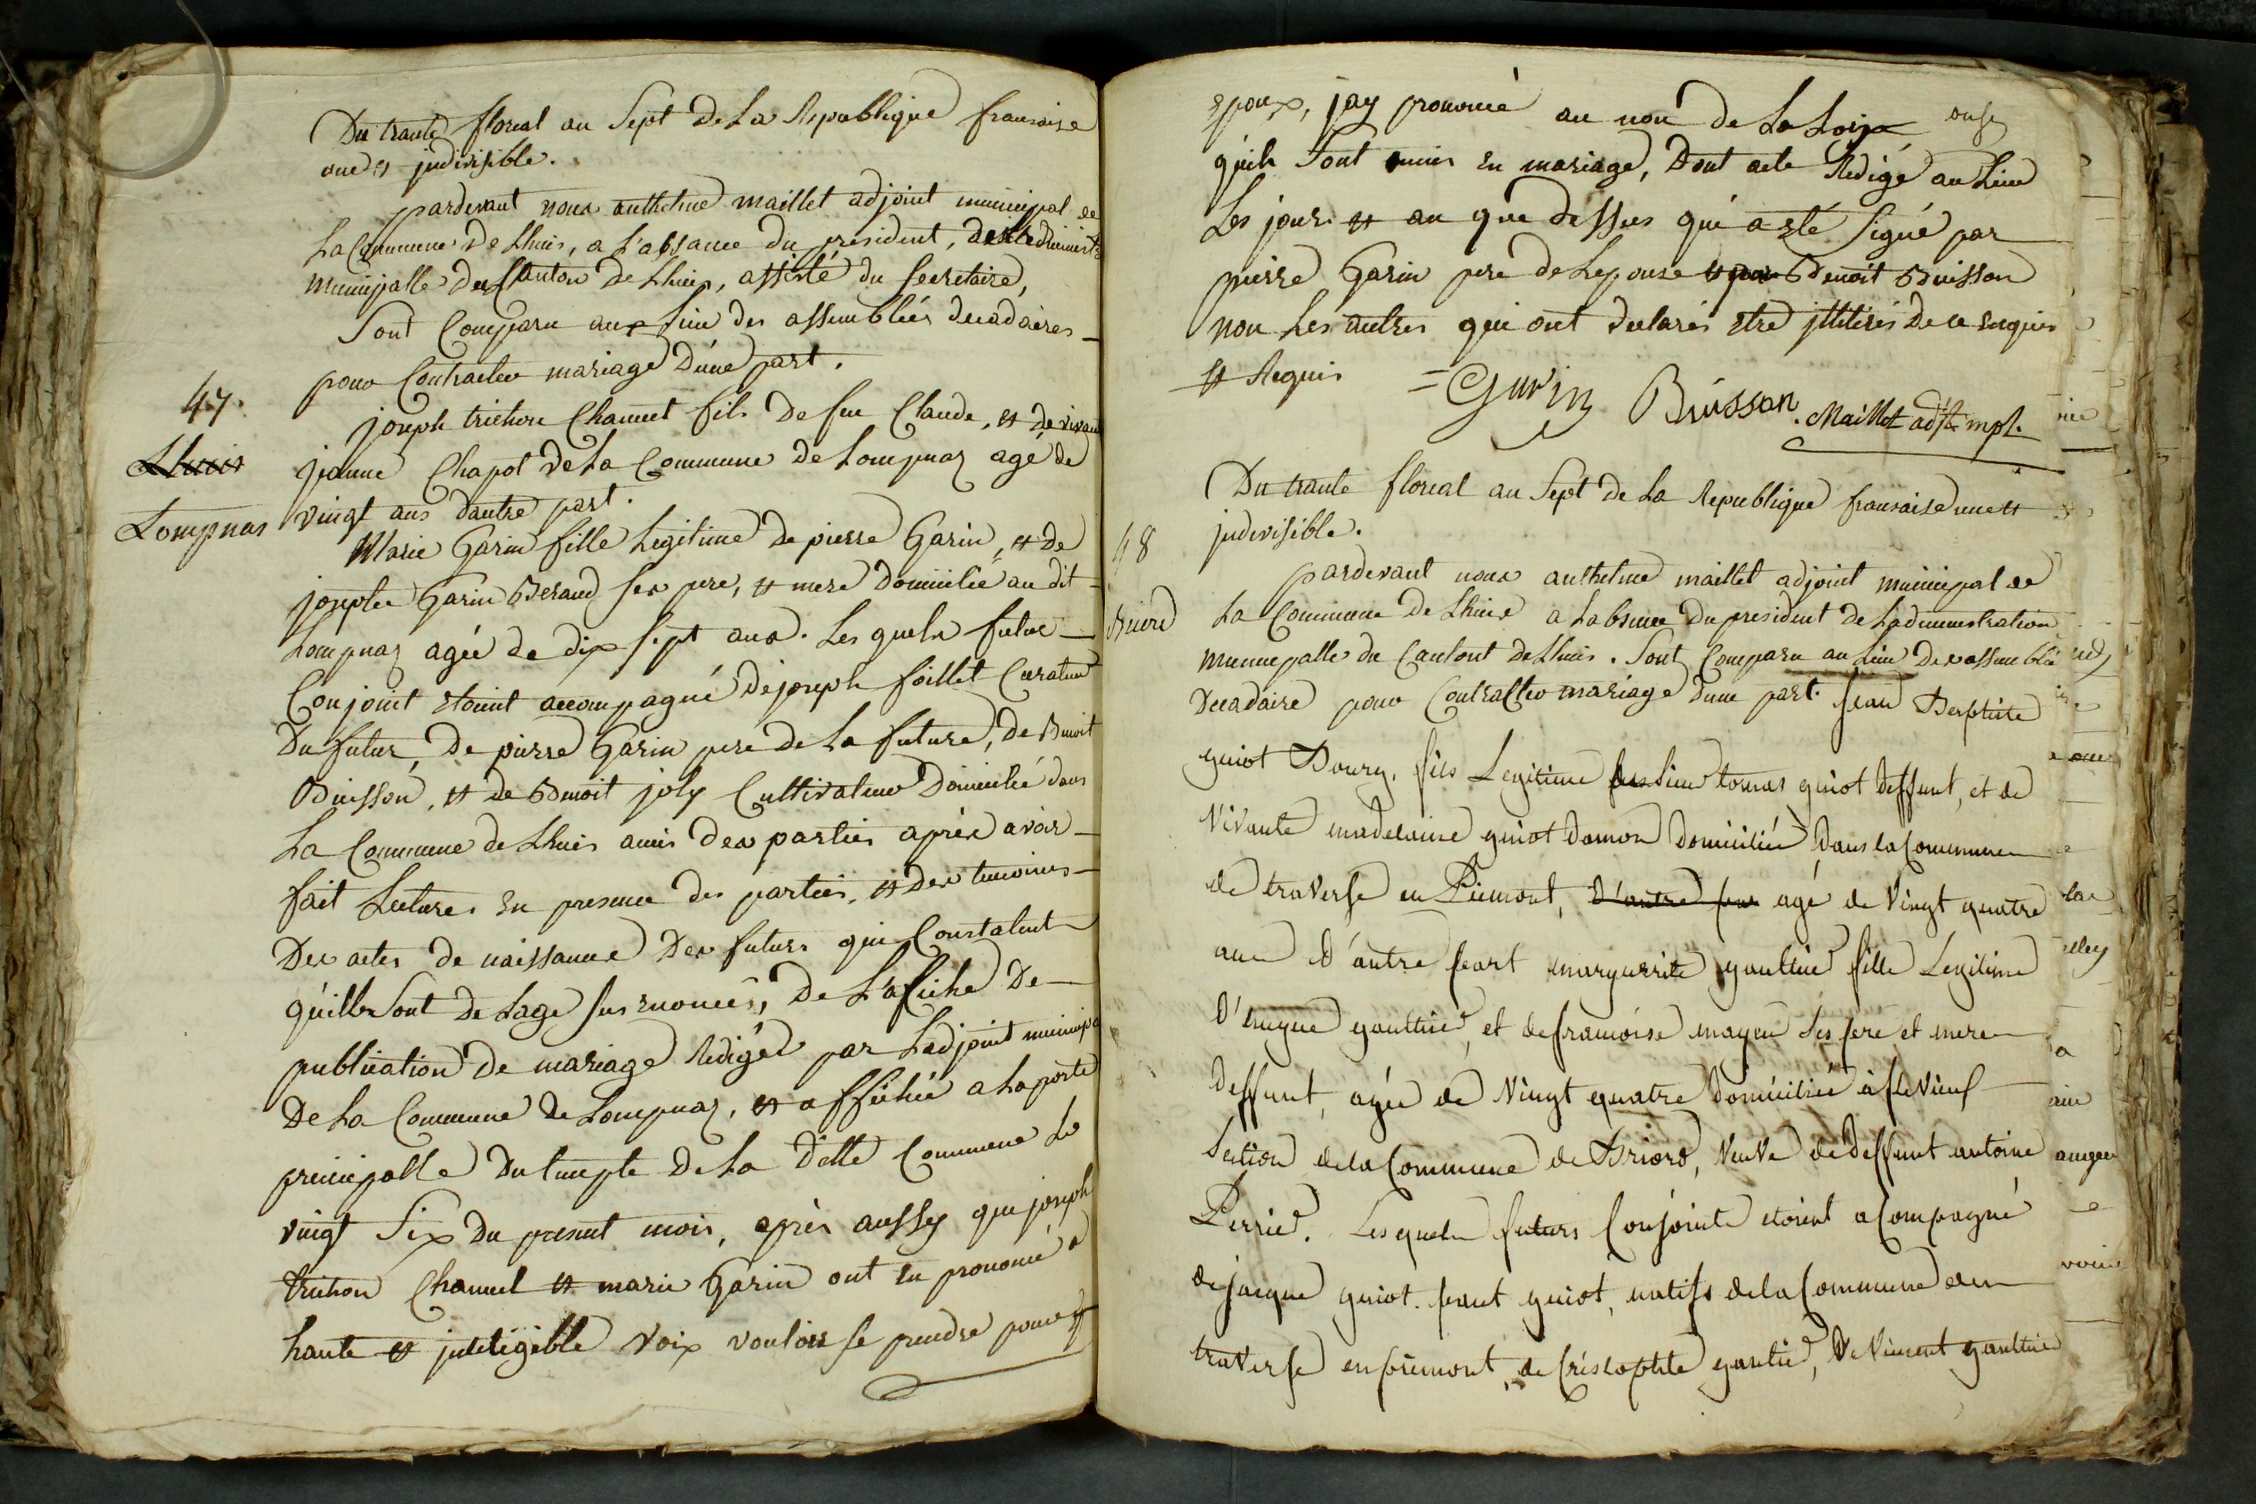 Du trante floreal an Sept de La Republique francaise
une et jndivisible.
pardevant nous anthelme maillet adjoint municipal de
La Commune de Lhuis, a L'absance du president, de Ladministr
municipalle du Canton de Lhuis, assisté du secretaire,
Sont Comparu aux Lieu des assemblées decadaires
pour Contracter mariage D'une part.
47.
Lhuis
Lompnas
joseph trichon Chamet fils de feu Claude, et de vivante
jeanne Chapot de La Commune de Lompnaz agé de
vingt ans dautre part.
Marie Garin fille Legitime de pierre Garin, et de
josephe Garin Beraud ses pere, et mere Domicilié au dit
Lompnaz agée de dix sept ans. Les quels futur
Conjoint etoint accompagné de joseph foillet Curateur
Du futur, de pierre Garin pere de La future, de Benoit
Buisson, et de Benoit joly Cultivateur Domicilié dans
La Commune de Lhuis amis des parties après avoir
fait Lectures En presence des parties, et des temoins
Des actes de naissance Des futurs qui Constatent
quills sont de Lage sus enoncés, de L'afiche De
publication de mariage Redigée par Ladjoint municipa
De La Commune de Lompnaz, et affichée a La porte
principalle Du temple De La ditte Commune Le
vingt Six Du present mois, après aussy que joseph
trichon Chamel et marie Garin ont En prononcé a
haute et jnteligible voix vouloir se prendre pour
epoux, jay prononcé au non de La Loix
quils Sont unis En mariage, Dont acte Redigé au Lieu
Les jours et an que dessus qui a eté signé par
pierre Garin pere de Lepouse et par Benoit Buisson
non Les autres qui ont declarés etre jlliterés de ce Enquis
et Requis = Garin Buisson. Maillet adjt mpl.
Du trante floreal an Sept de La Republique francaise une et
jndivisible.
48
Briord
pardevant nous anthelme maillet adjoint municipal de
La Commune de Lhuis a Labsence du president de Ladministration
municipalle du Cantont de Lhuis. Sont Comparu au Lieu des assemblée
Decadaire pour Contracter mariage dune part. Jean Baptiste
guiot Doury, fils Legitime de sieur tomas guiot deffunt, et de
Vivante madelaine guiot damon domiciliée dans la Commune
de traverse en Piemont, d'autre par agé de Vingt quatre
ans d'autre part marguerite gaultier fille Legitime
D'emyne gaultier, et de francoise mayeu ses pere et mere
Deffunt, agée de Vingt quatre domiciliée à
Section de la Commune de Briord, Veuve de deffunt antoine
Perrier. Les quels futurs Conjoints etoient acompagné
de jacque guiot. paul guiot, natifs de la Commune de
traverse en piemont, de Cristophle gaultier, de Vincent gaultier